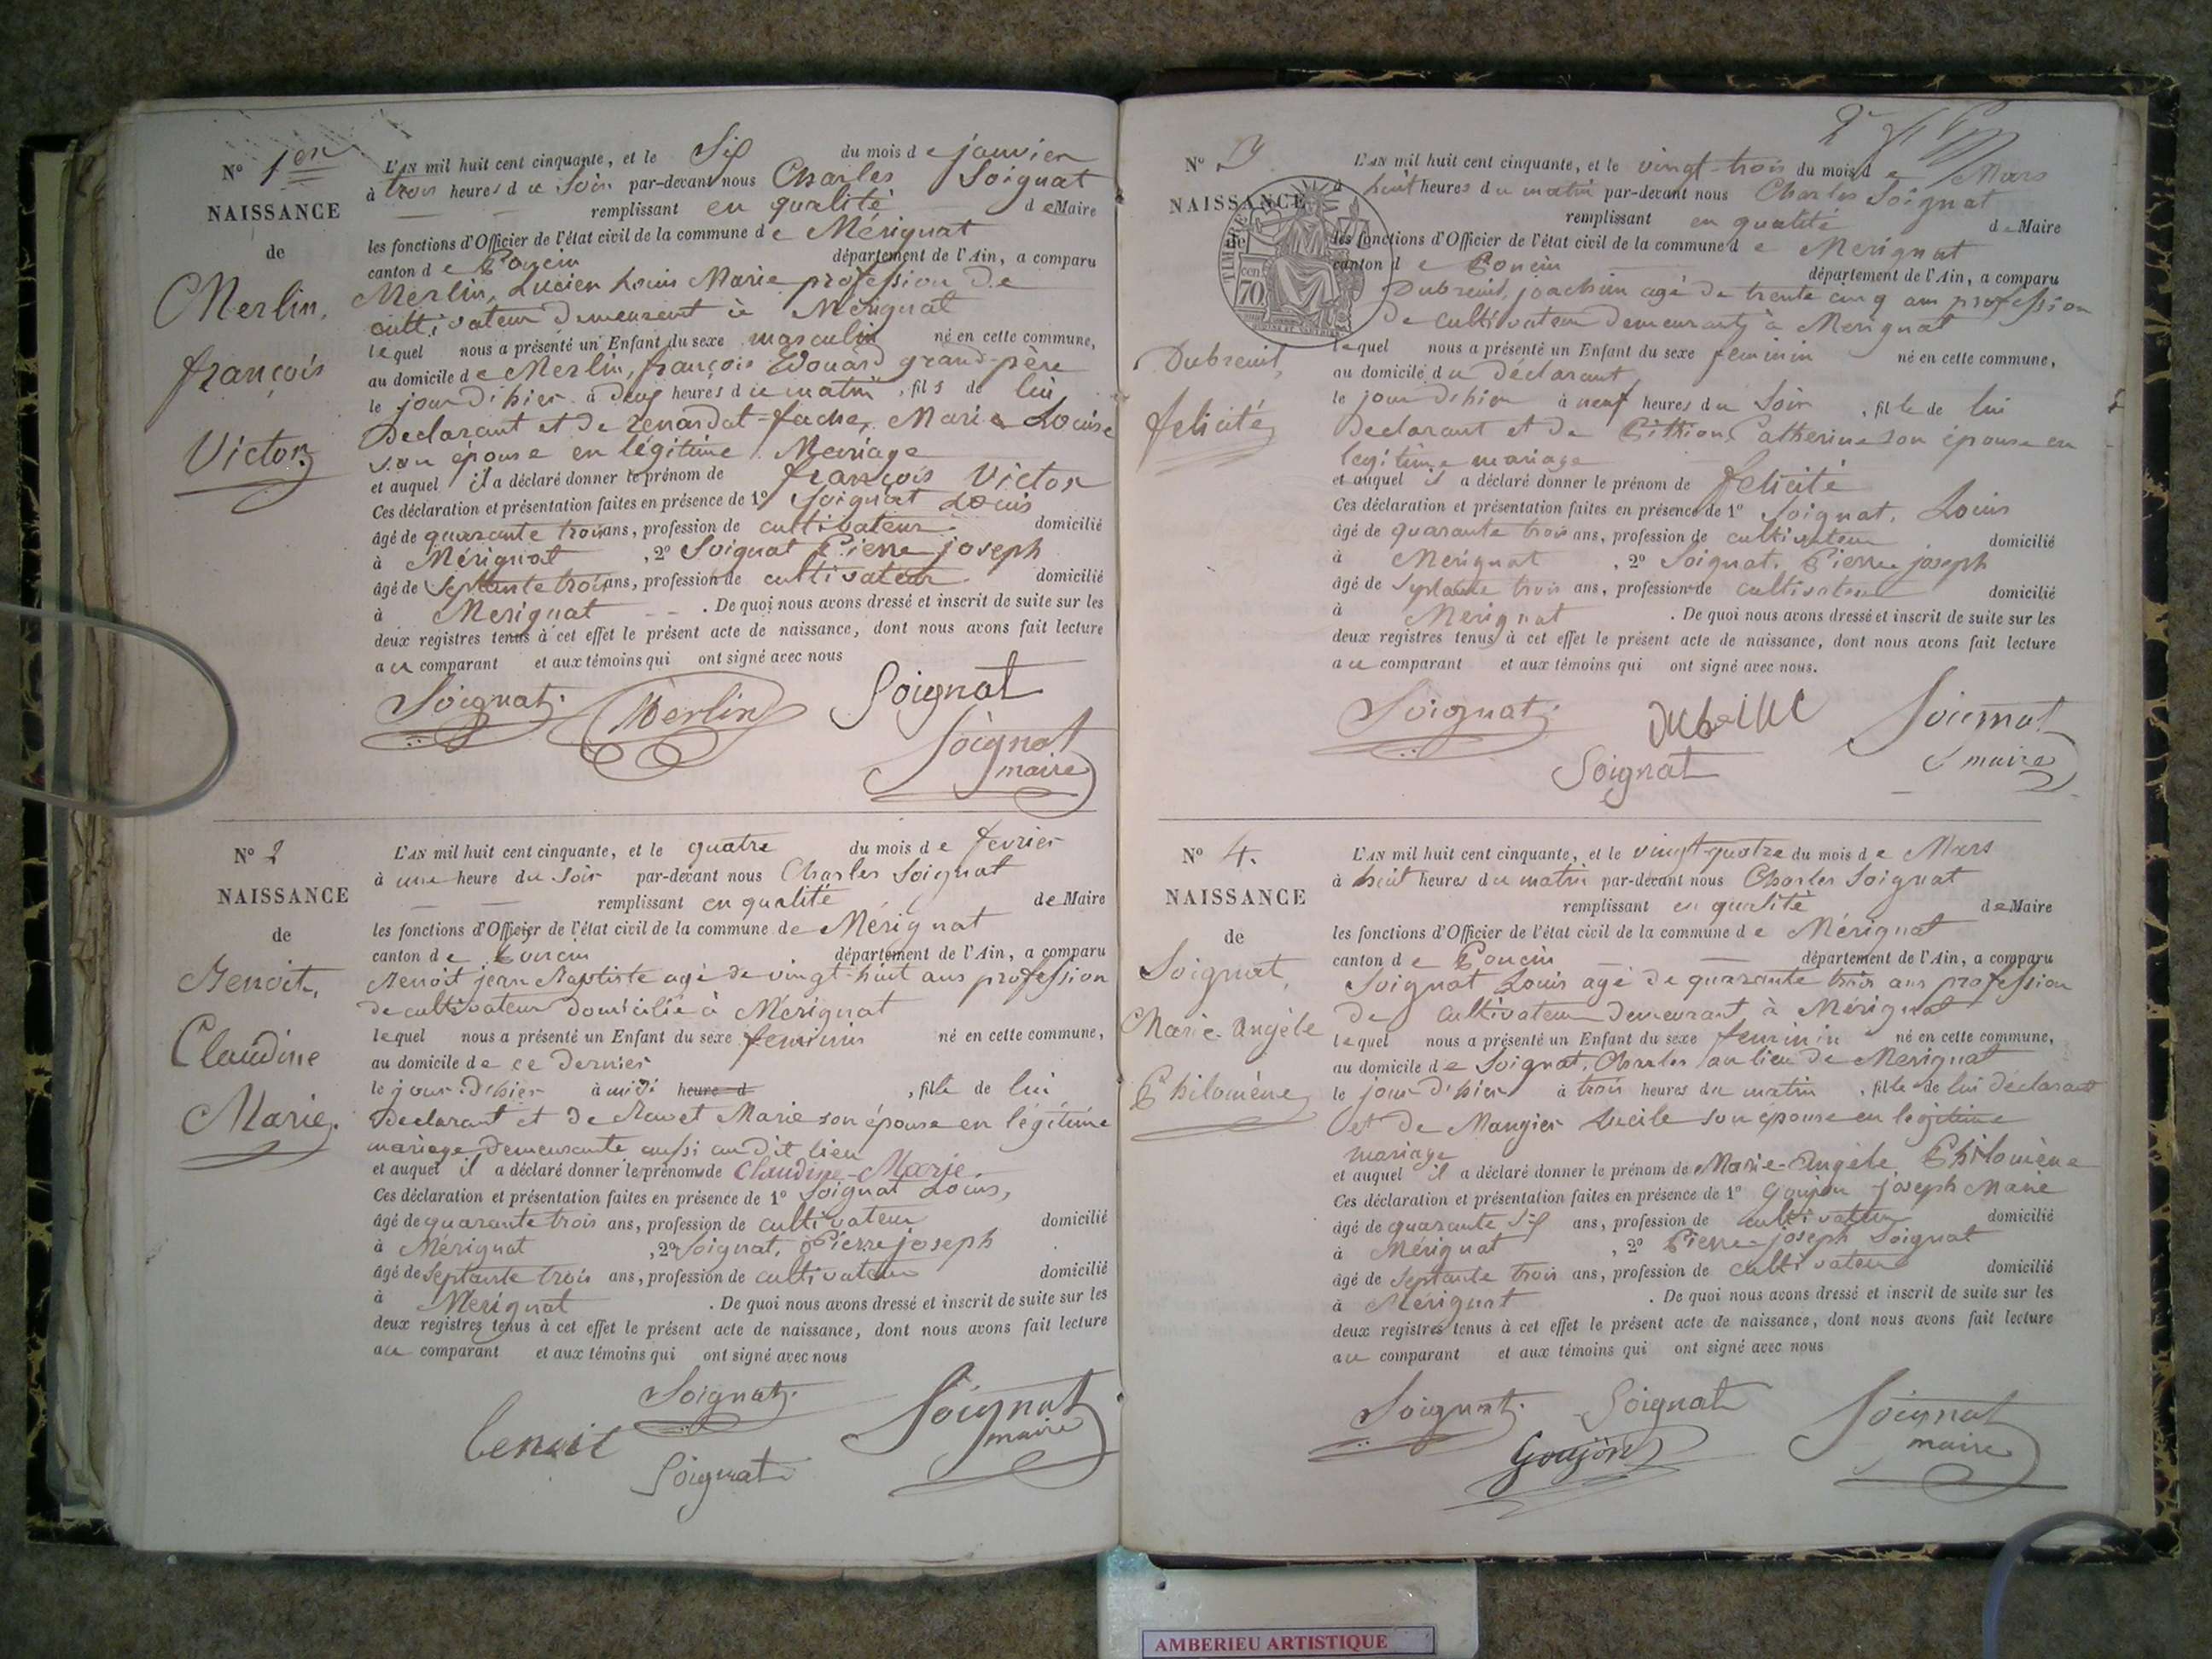 N° 1er
NAISSANCE
de
Merlin,
françois
Victor
L'AN mil huit cent cinquante, et le Six du mois de janvier
à trois heures du Soir par-devant nous Charles Soignat
remplissant en qualité de Maire
les fonctions d'Officier de l'état civil de la commune de Mérignat
canton de Poncin département de l'Ain, a comparu
Merlin, Lucien Louis Marie profession de
cultivateur Demeurant à Mérignat
lequel nous a présenté un Enfant du sexe masculin né en cette commune,
au domicile de Merlin, françois Edouard grand-père
le jour D'hier à Deux heures du matin, fils de lui
Declarant et de Marie Louise
son épouse en légitime Mariage
et auquel il a déclaré donner le prénom de françois Victor
Ces déclaration et présentation faites en présence de 1° Soignat Louis
âgé de quarante trois ans, profession de cultivateur domicilié
à Mérignat, 2° Soignat Pierre joseph
âgé de Septante trois ans, profession de cultivateur domicilié
à Merignat. De quoi nous avons dressé et inscrit de suite sur les
deux registres tenus à cet effet le présent acte de naissance, dont nous avons fait lecture
au comparant et aux témoins qui ont signé avec nous
Soignat Merlin Soignat
Soignat
maire
N° 2
NAISSANCE
de
Benoit,
Claudine
Marie.
L'AN mil huit cent cinquante, et le quatre du mois de fevrier
à une heure du Soir par-devant nous Charles Soignat
remplissant en qualité de Maire
les fonctions d'Officier de l'état civil de la commune de Mérignat
canton de Poncin département de l'Ain, a comparu
Benoit jean Baptiste agé de vingt-huit ans profession
de cultivateur domicilié à Mérignat
lequel nous a présenté un Enfant du sexe feminin né en cette commune,
au domicile de ce Dernier
le jour D'hier à midi heure d, fille de lui
Declarant et de Marie son épouse en légitime
mariage Demeurante aussi au dit lieu
et auquel il a déclaré donner le prénom de Claudine-Marie.
Ces déclaration et présentation faites en présence de 1° Soignat Louis,
âgé de quarante trois ans, profession de cultivateur domicilié
à Mérignat, 2° Soignat, Pierre joseph
âgé de Septante trois ans, profession de cultivateur domicilié
à Merignat. De quoi nous avons dressé et inscrit de suite sur les
deux registres tenus à cet effet le présent acte de naissance, dont nous avons fait lecture
au comparant et aux témoins qui ont signé avec nous
Soignat Soignat
maire
benoit
Soignat
N° 3
NAISSANCE
de
TIMBRE
70 cen
Dubreuil,
felicité
L'AN mil huit cent cinquante, et le vingt-trois du mois de Mars
à huit heures du matin par-devant nous Charles Soignat
remplissant en qualité de Maire
les fonctions d'Officier de l'état civil de la commune de Merignat
canton de Poncin département de l'Ain, a comparu
Dubreuil, joachim agé de trente cinq ans profession
De cultivateur demeurant à Merignat
lequel nous a présenté un Enfant du sexe feminin né en cette commune,
au domicile du déclarant
le jour D'hier à neuf heures du Soir, fille de lui
Declarant et de Pittion, Catherine son épouse en
legitime mariage
et auquel il a déclaré donner le prénom de felicité
Ces déclaration et présentation faites en présence de 1° Soignat, Louis
âgé de quarante trois ans, profession de cultivateur domicilié
à Merignat, 2° Soignat, Pierre joseph
âgé de Septante trois ans, profession de cultivateur domicilié
à Merignat. De quoi nous avons dressé et inscrit de suite sur les
deux registres tenus à cet effet le présent acte de naissance, dont nous avons fait lecture
au comparant et aux témoins qui ont signé avec nous.
Soignat Soignat
maire
Soignat
N° 4.
NAISSANCE
de
Soignat,
Marie-Angèle
Philomène
L'AN mil huit cent cinquante, et le vingt-quatre du mois de Mars
à huit heures du matin par-devant nous Charles Soignat
remplissant en qualité de Maire
les fonctions d'Officier de l'état civil de la commune de Mérignat
canton de Poncin département de l'Ain, a comparu
Soignat Louis agé de quarante trois ans profession
de cultivateur Demeurant à Mérignat
lequel nous a présenté un Enfant du sexe feminin né en cette commune,
au domicile de Soignat, Charles au lieu de Merignat
le jour D'hier à trois heures du matin, fille de lui déclarant
et de Mangier Lucile son épouse en legitime
mariage
et auquel il a déclaré donner le prénom de Marie-Angèle Philomène
Ces déclaration et présentation faites en présence de 1° Goujon joseph Marie
âgé de quarante Six ans, profession de cultivateur domicilié
à Mérignat, 2° Pierre-joseph Soignat
âgé de Septante trois ans, profession de cultivateur domicilié
à Mérignat. De quoi nous avons dressé et inscrit de suite sur les
deux registres tenus à cet effet le présent acte de naissance, dont nous avons fait lecture
au comparant et aux témoins qui ont signé avec nous
Soignat Soignat Soignat
maire
Goujon
AMBERIEU ARTISTIQUE